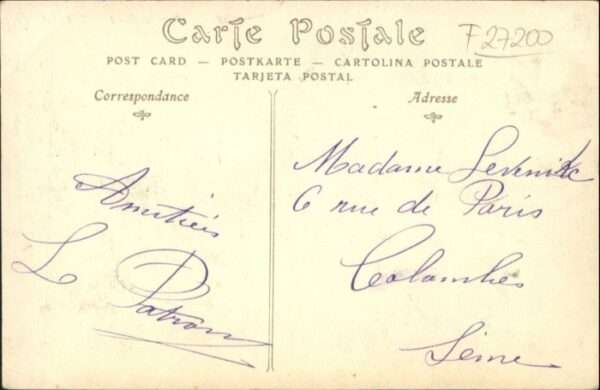 Carte Postale
F 27200
POST CARD — POSTKARTE — CARTOLINA POSTALE
TARJETA POSTAL
Correspondance
Amitiés
L Patron
Adresse
Madame
6 rue de Paris
Colombes
Seine